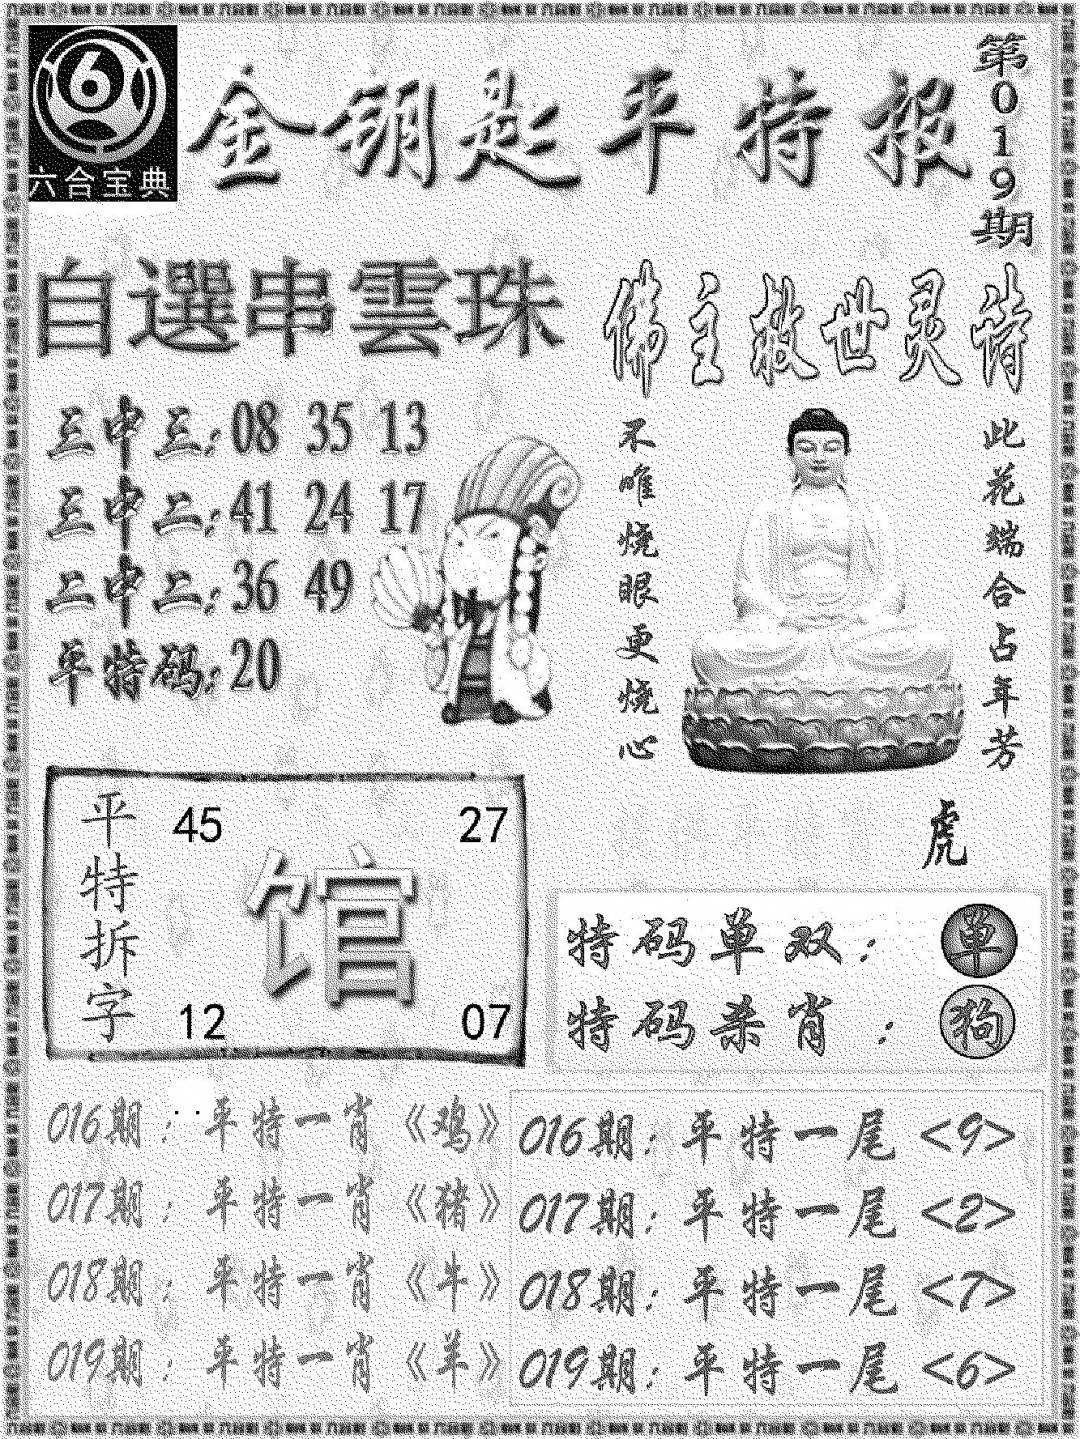 六合宝典
金钥匙平特报
第019期
自選串雲珠
三中三:08 35 13
三中二:41 24 17
二中二:36 49
平特码:20
佛主救世灵诗
此花端合占年芳
不唯烧眼更烧心
虎
平特拆字
45 27
馆
12 07
特码单双: 单
特码杀肖: 狗
016期:平特一肖《鸡》
017期:平特一肖《猪》
018期:平特一肖《牛》
019期:平特一肖《羊》
016期:平特一尾<9>
017期:平特一尾<2>
018期:平特一尾<7>
019期:平特一尾<6>